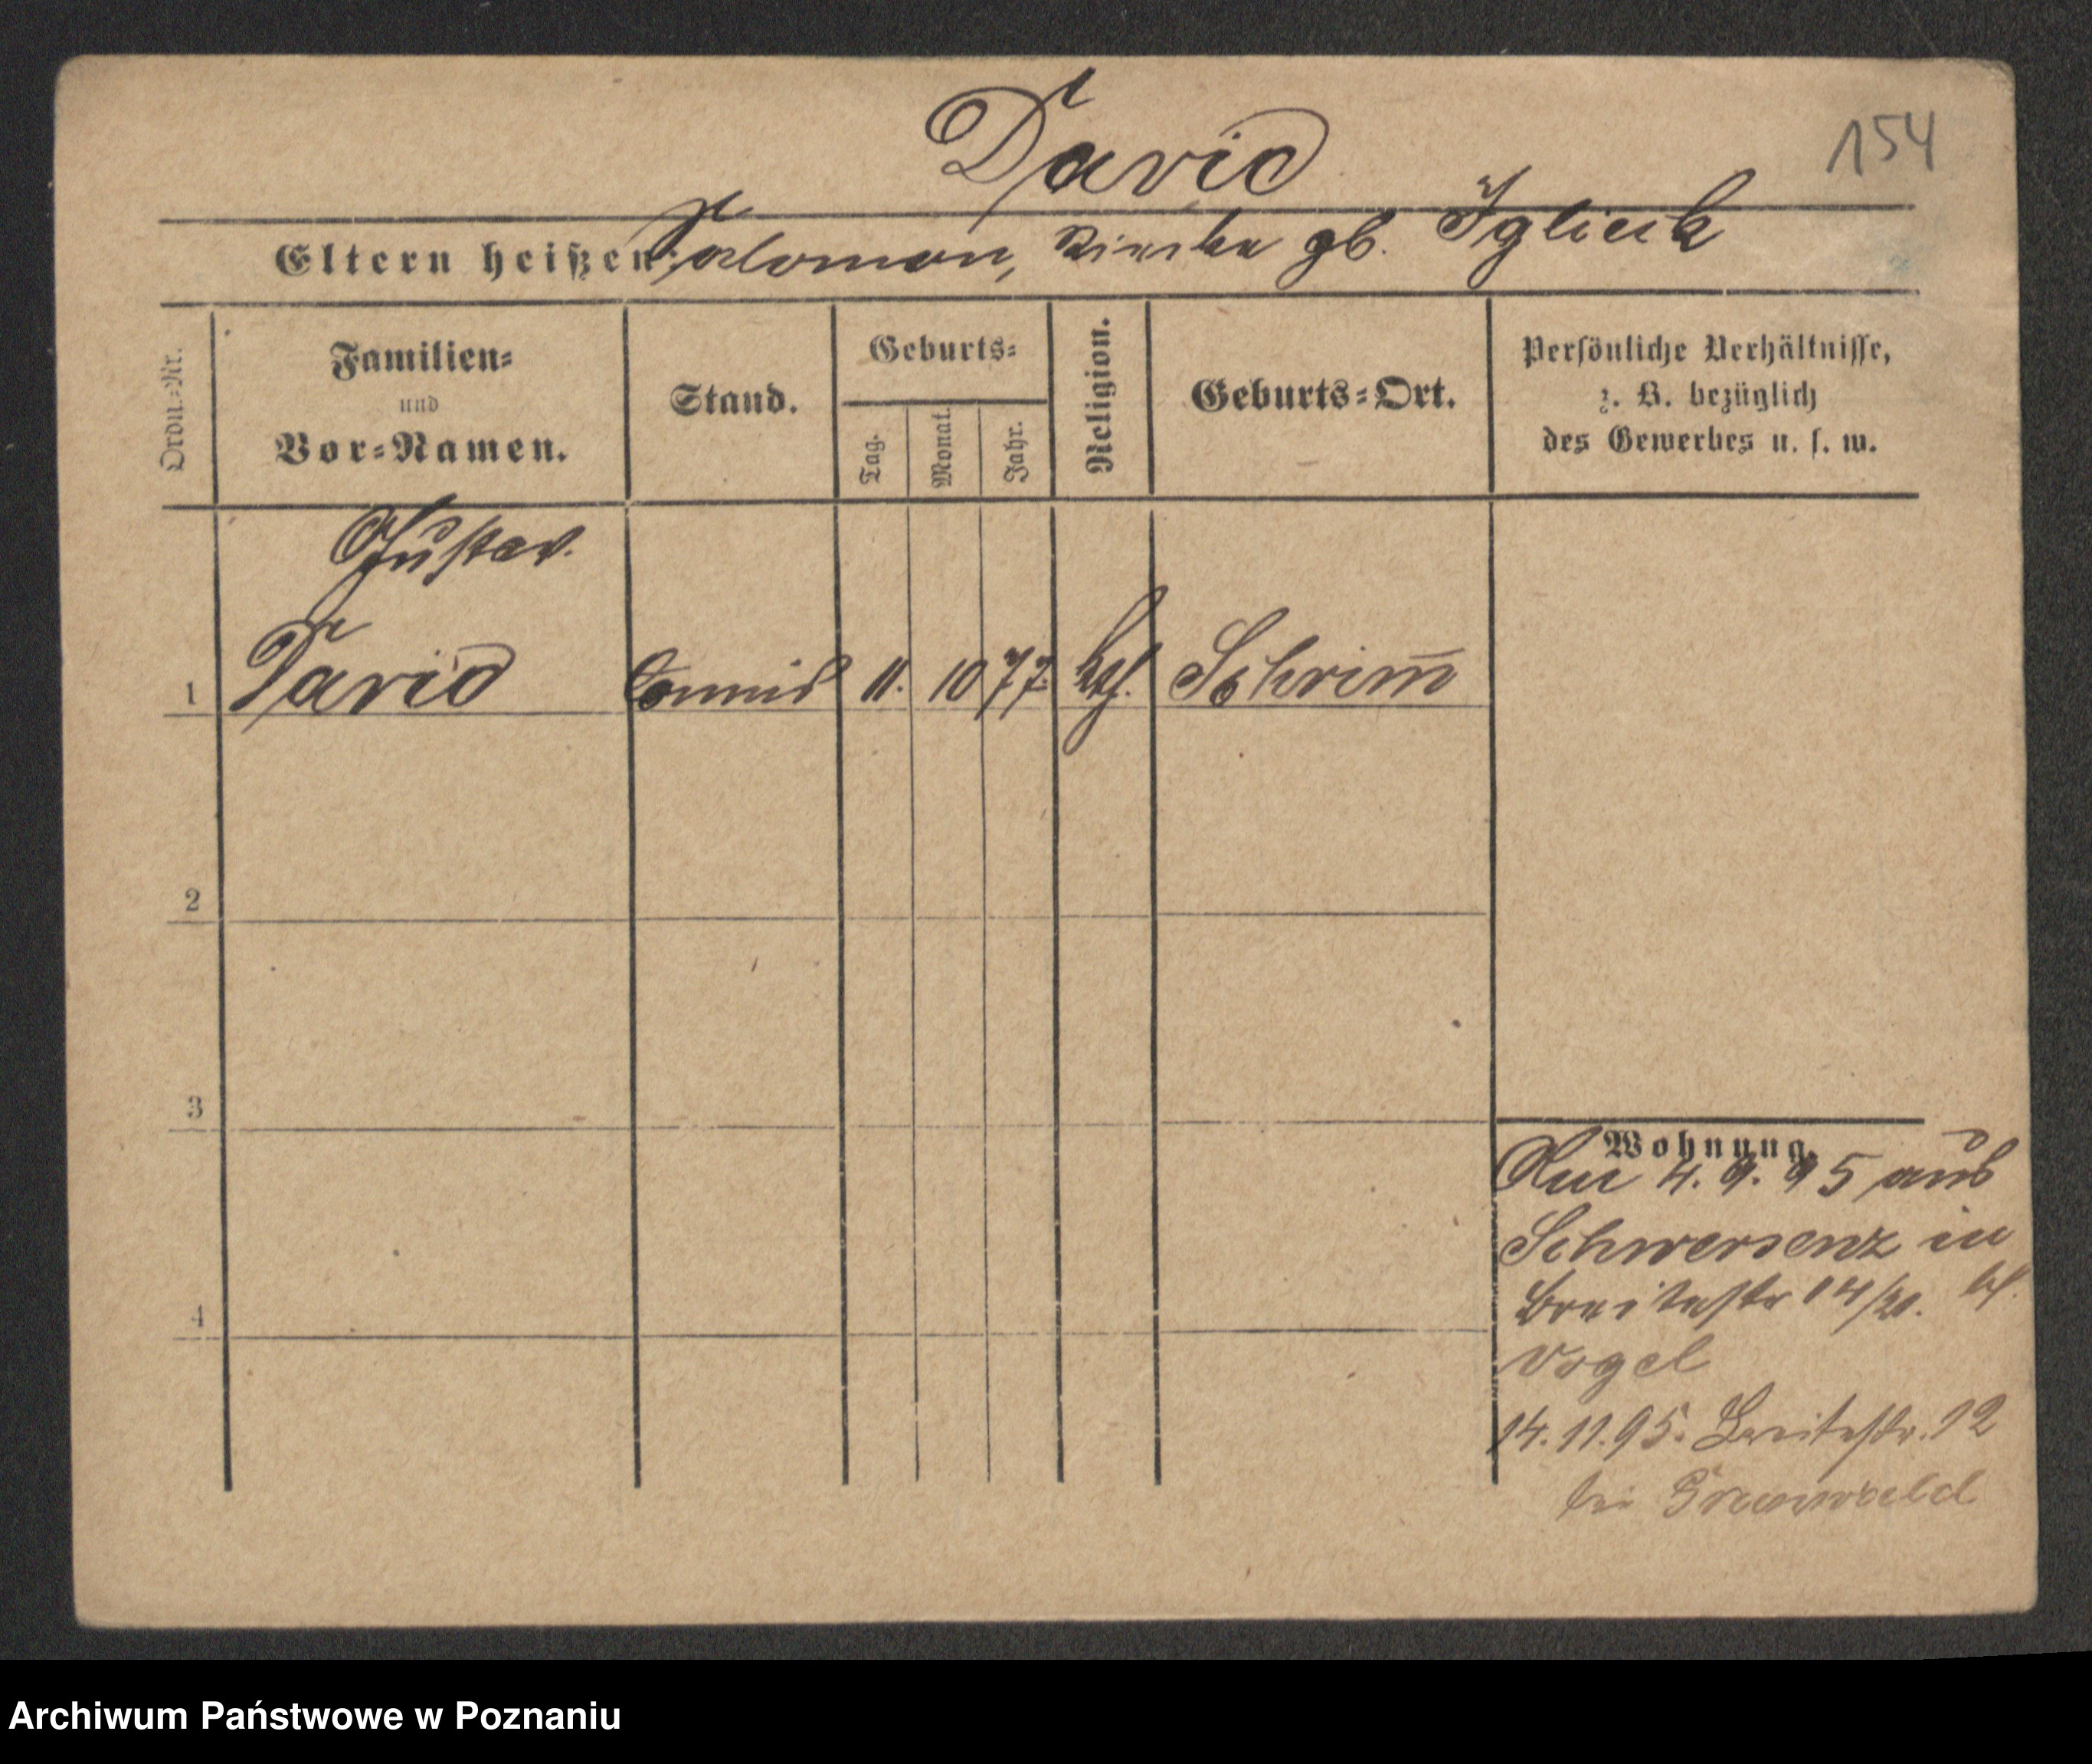 David
154
Eltern heißen: Salomon, Rieke gb. Iglick
Ordn.-Nr.
Familien-
und
Vor-Namen.
Stand.
Geburts-
Tag.
Monat.
Jahr.
Religion.
Geburts-Ort.
Persönliche Verhältnisse,
z. B. bezüglich
des Gewerbes u. s. w.
Gustav.
1 David Commis 11. 10 77. Schrim̅
2
3
4
Wohnung.
4. 9. 95 aus
Schwersenz in
Breitestr 14/
Vogel
14. 11. 95. Breitestr. 12
bei Grunwald
Archiwum Państwowe w Poznaniu